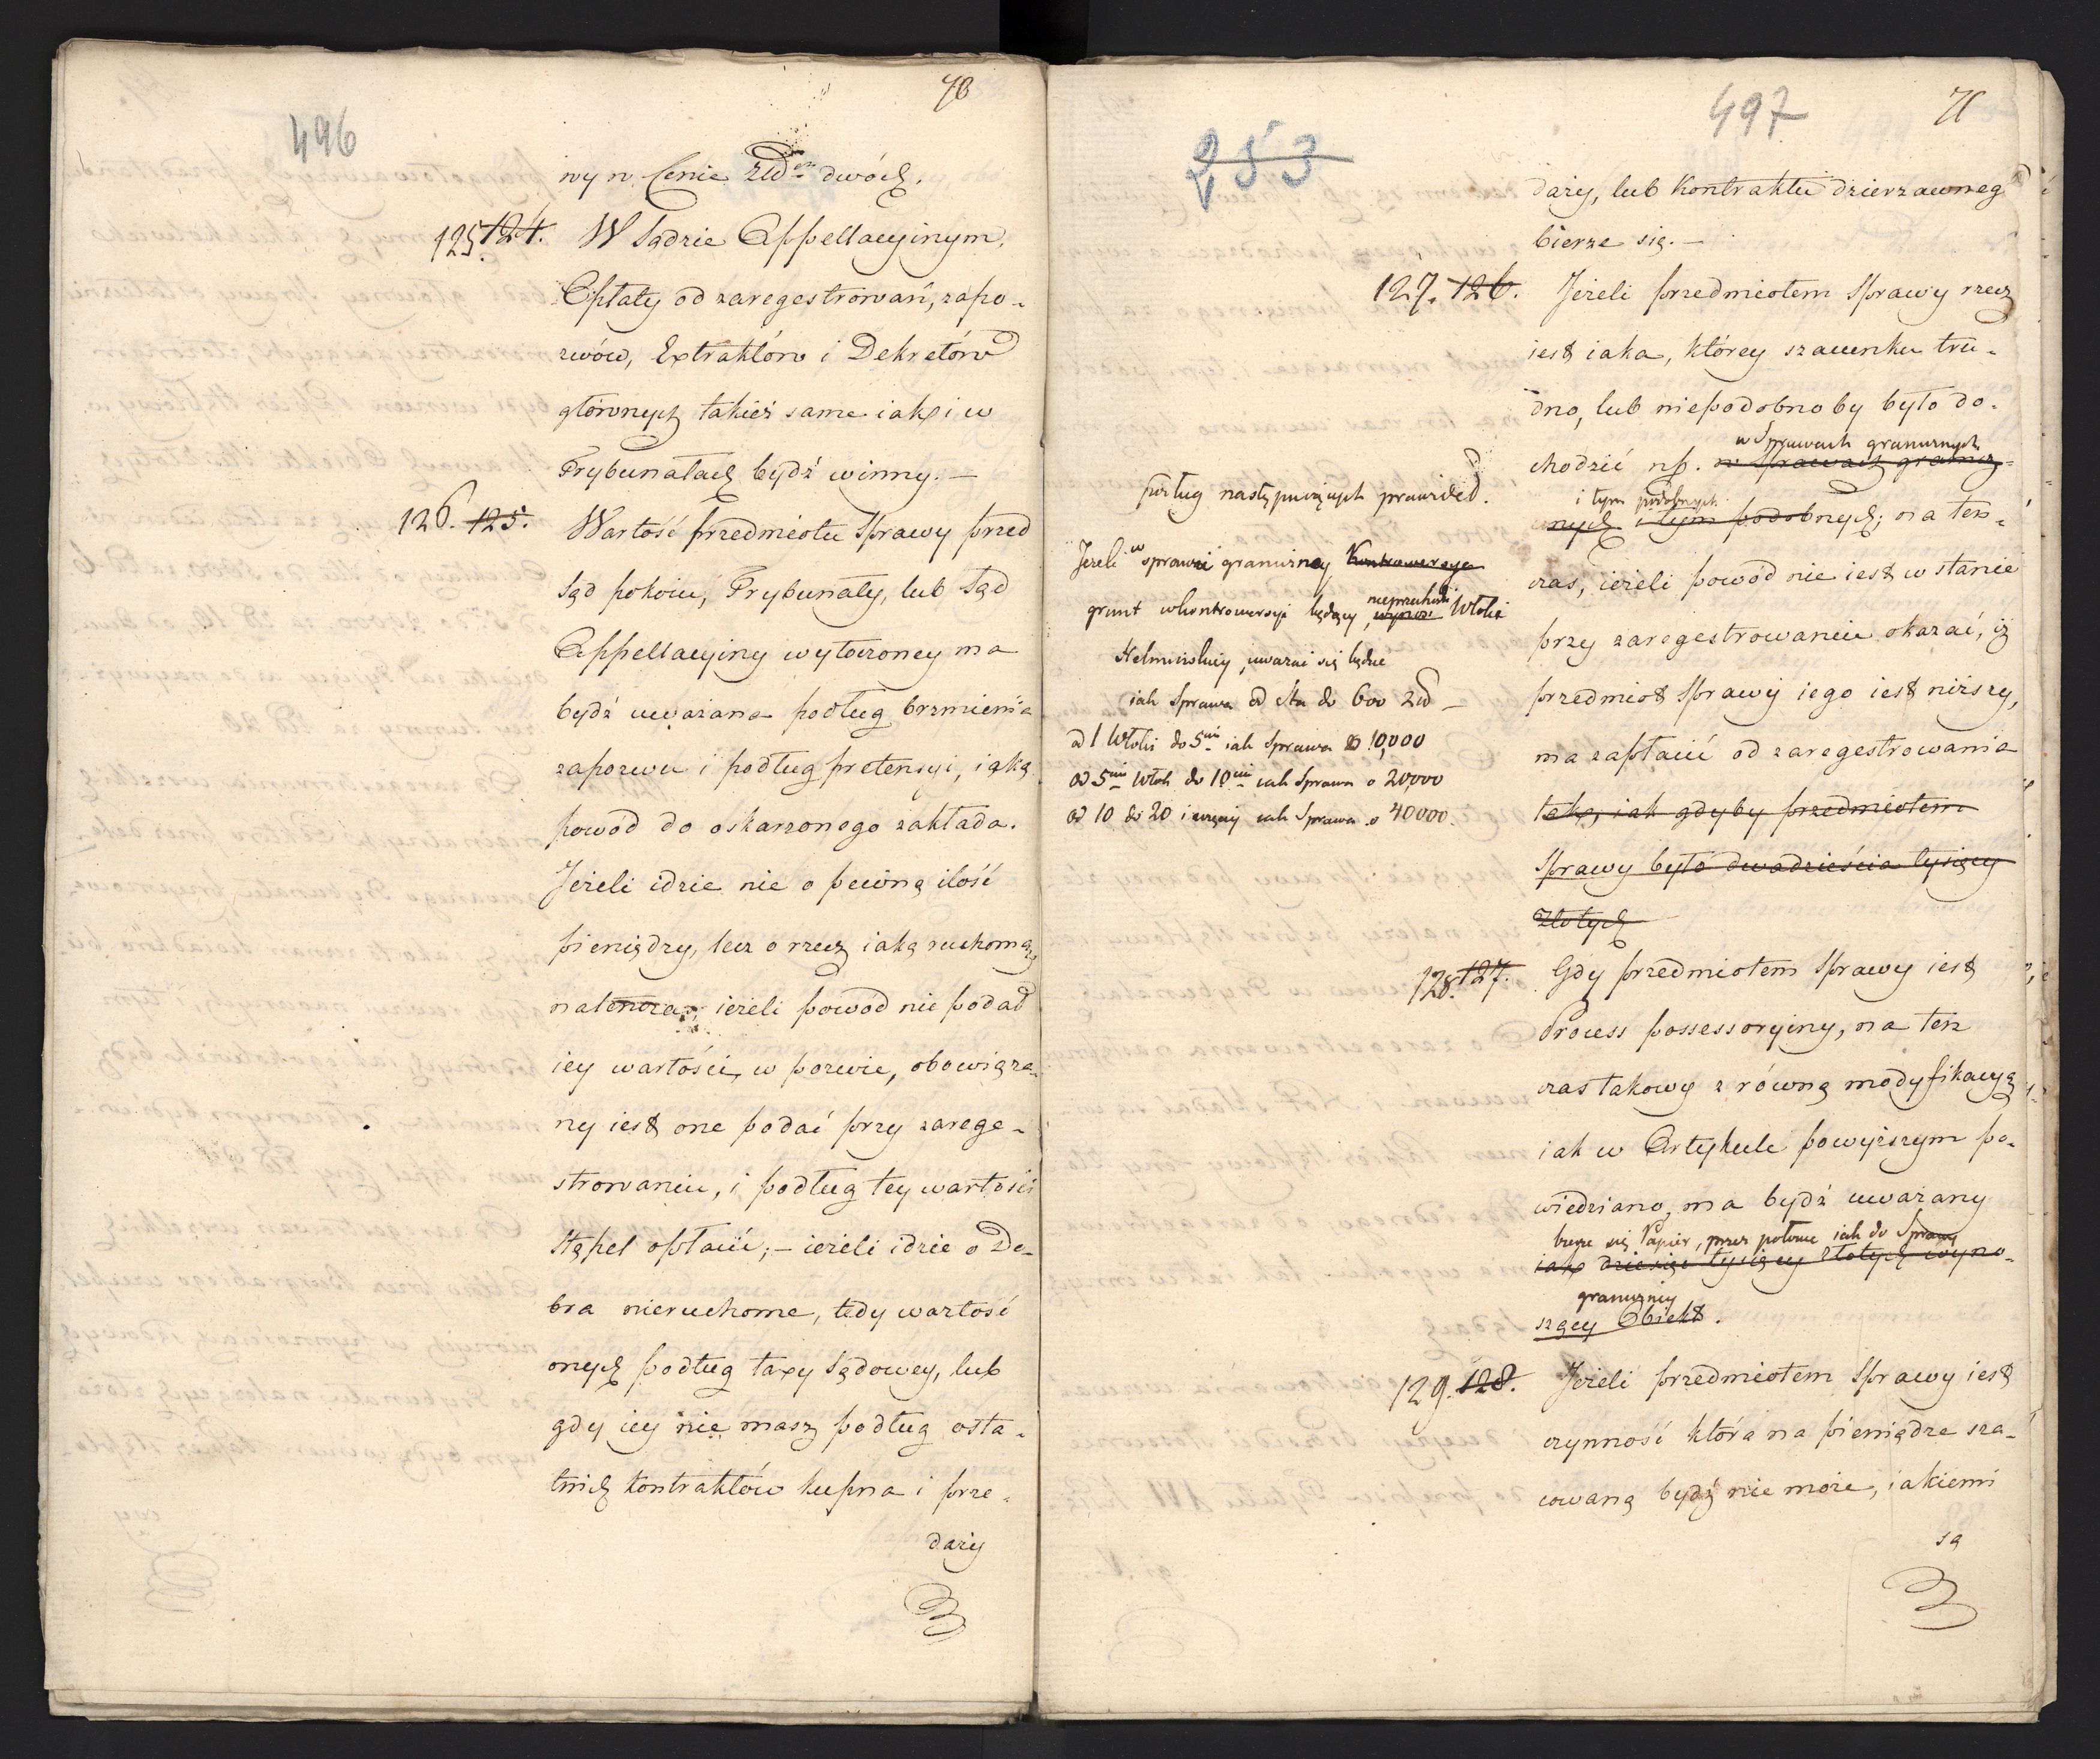 70
496
wy w Cenie Złł. dwóch.
125. 124. W Sądzie Appellacyinym,
Opłaty od zaregestrowań, zapo-
zwów, Extraktów i Dekretów
głównych takież same iak i w
Trybunałach bydź winny. —
126. 125. Wartość przedmiotu Sprawy przed
Sąd pokoiu, Trybunały, lub Sąd
Appellacyiny wytoczoney ma
bydź uważana podług brzmienia
zapozwu i podług pretensyi, iaką
powód do oskarzonego zakłada.
Jeżeli idzie nie o pewną ilość
pieniędzy, lecz o rzecz iaką ruchomą,
natenczas, ieżeli powód nie podał
iey wartości, w pozwie, obowiąza-
ny iest one podać przy zarege-
strowaniu, i podług tey wartości
Stępel opłacić; — ieżeli idzie o Do-
bra nieruchome, tedy wartość
onych podług taxy Sądowey, lub
gdy iey nie masz podług osta-
tnich Kontraktów kupna i prze-
daży
71
497
253
daży, lub Kontraktu dzierzawnego
bierze się. —
127. 126. Jeżeli przedmiotem Sprawy rzecz
iest iaka, którey szacunku tru-
dno, lub niepodobno by było do-
w Sprawach granicznych
chodzić np. w Sprawach granicz-
i tym podobnych
nych i tym podobnych; na ten-
czas, ieżeli powód nie iest w stanie
przy zaregestrowaniu okazać, iż
przedmiot Sprawy iego iest niższy,
ma zapłacić od zaregestrowania
taką, iak gdyby przedmiotem
Sprawy było dwadzieścia tysięcy
Złotych
podług następuiących prawideł.
Jeżeli w sprawie graniczney Kontrowersya
grunt w kontrowersyi będący, nieprzechodzi wynosi Włoki
Chełmińskiey, uważać się będzie
iak Sprawa od sta do 600 Złł —
od 1 Włoki do 5ciu iak Sprawa o 10,000
od 5ciu Włok do 10ciu iak Sprawa o 20,000
od 10 do 20 i więcey iak Sprawa o 40000.
128. 127. Gdy przedmiotem Sprawy iest
Process possessoryiny, na ten
czas takowy z równą modyfikacyą
iak w Artykule powyższym po-
wiedziano, ma bydź uważany
bierze się Papier, przez połowę iak do Sprawy
iak dziesięć tysięcy Złotych wyno-
graniczney
szący Obiekt.
129. 128. Jeżeli przedmiotem Sprawy iest
czynność która na pieniądze sza-
cowaną bydź nie może, iakiemi
są